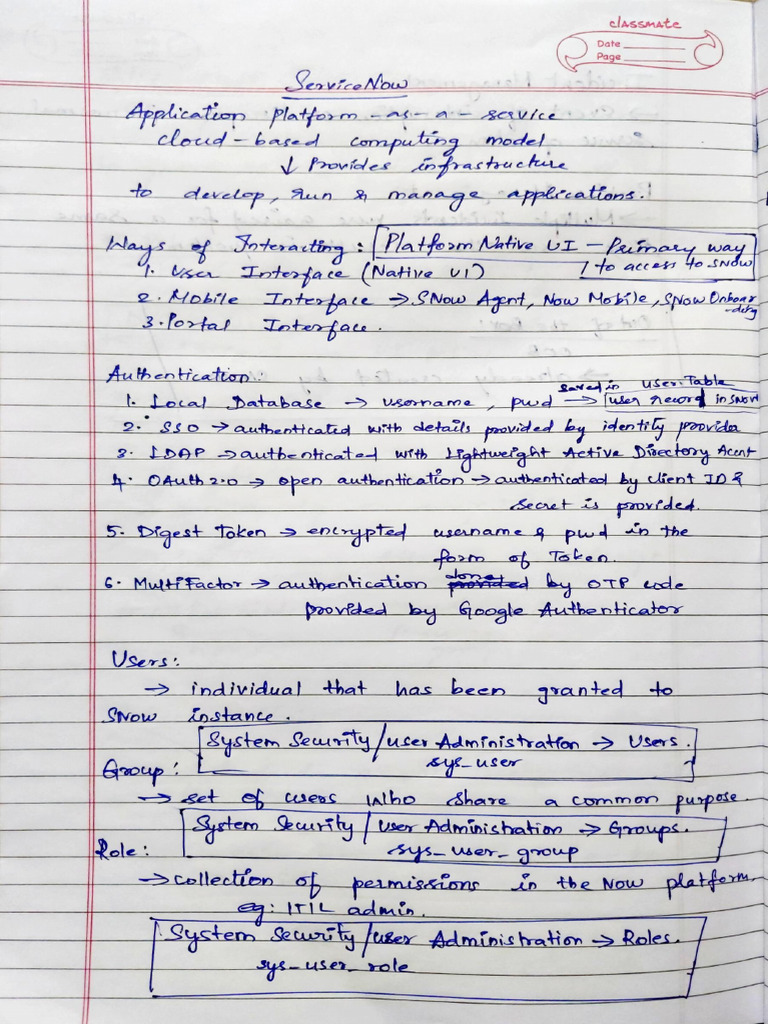 classmate
Date
Page
ServiceNow
Application Platform -as-a-service
cloud-based computing model
↓ Provides infrastructure
to develop, run & manage applications.
Ways of Interacting : Platform Native UI - Primary way
to access to SNOW
1. User Interface (Native UI)
2. Mobile Interface → SNow Agent, Now Mobile, SNow Onboar
-ding
3. Portal Interface.
Authentication:
saved in User.Table
1. Local Database → username, pwd → user record in SNow
2. SSO → authenticated with details provided by identity provider
3. LDAP → authenticated with Lightweight Active Directory Accnt
4. OAuth 2.0 → open authentication → authenticated by client ID &
secret is provided.
5. Digest Token → encrypted username & pwd in the
form of Token.
6. MultiFactor → authentication provided done by OTP code
provided by Google Authenticator
Users:
→ individual that has been granted to
SNow instance.
System Security/User Administration → Users.
sys_user
Group :
→ set of users who share a common purpose.
System Security / User Administration → Groups.
sys_user_group
Role :
→ collection of permissions in the Now platform.
eg: ITIL admin.
System Security/User Administration → Roles.
sys_user_role